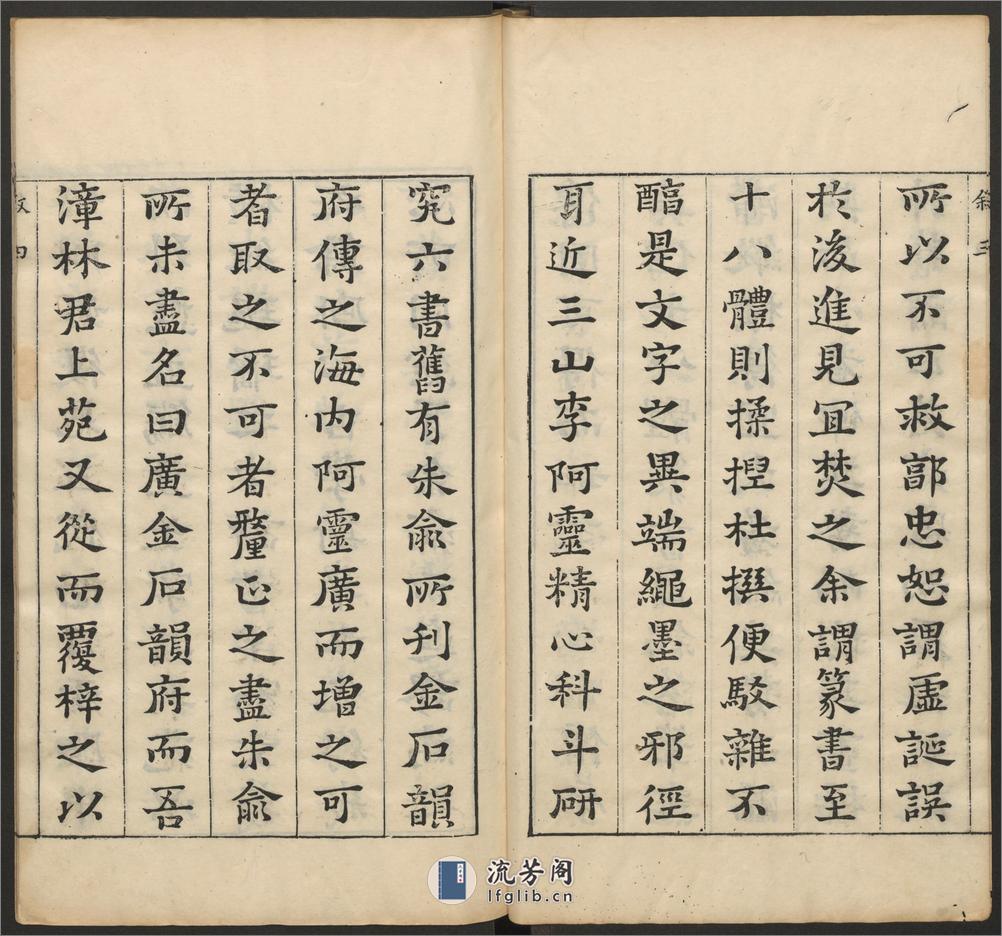 敘 三
所以不可救郭忠恕謂虛誕誤
於後進見冝焚之余謂篆書至
十八體則揉揑杜撰便駁雜不
醕是文字之異端繩墨之邪徑
耳近三山李阿靈精心科斗研
究六書舊有朱兪所刊金石韻
府傳之海内阿靈廣而增之可
者取之不可者釐正之盡朱兪
所未盡名曰廣金石韻府而吾
漳林君上苑又從而覆梓之以
四
流芳阁
lfglib.cn